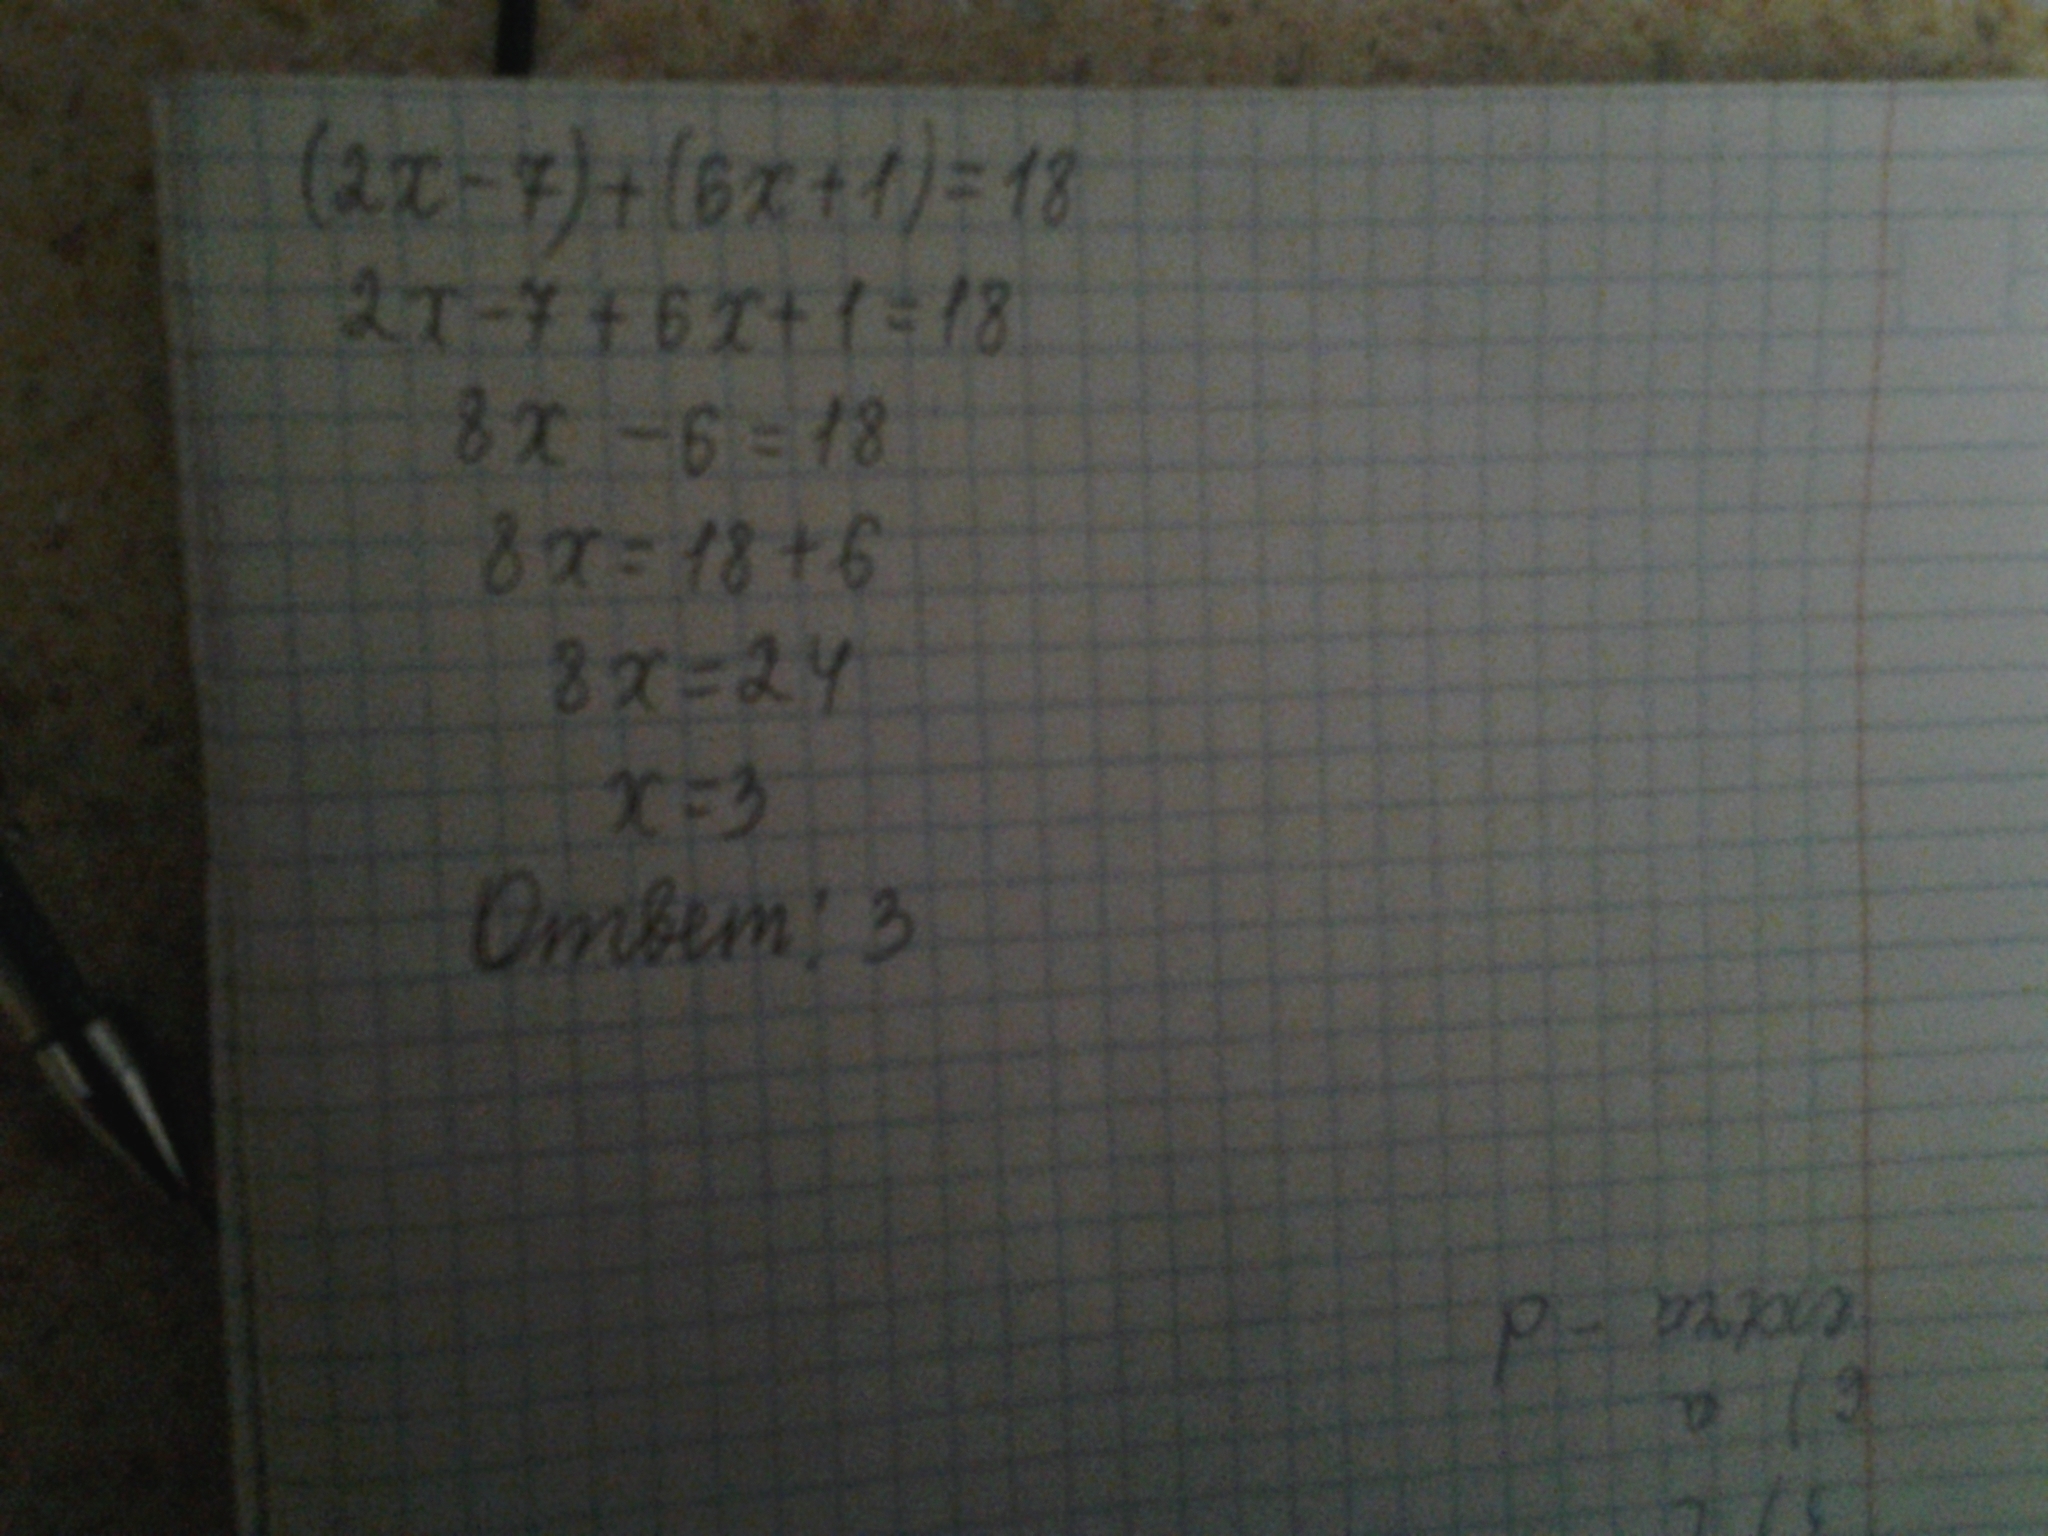 (2x-7)+(6x+1)=18
2x-7+6x+1=18
8x -6=18
8x=18+6
8x=24
x=3
Ответ: 3
extra - d